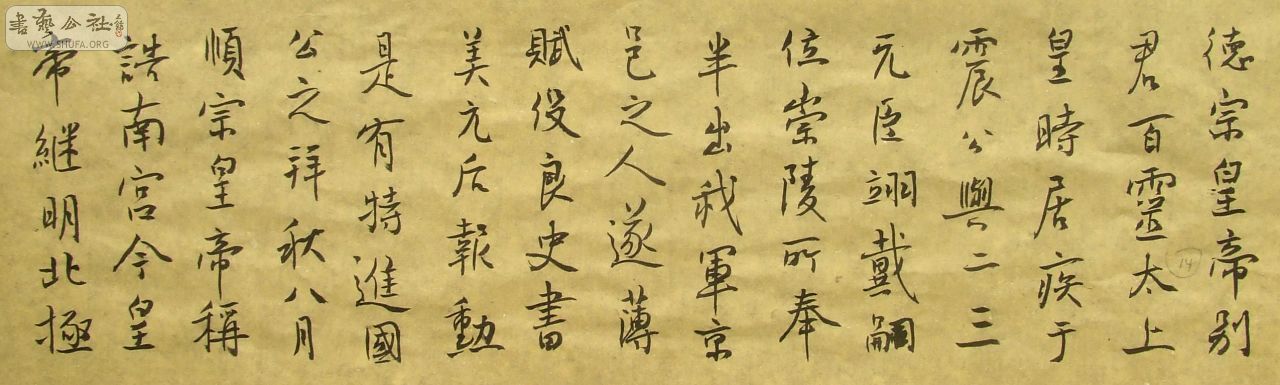 德宗皇帝别
君百靈太上
皇時居疾于
震公與二三
元臣翊戴嗣
位崇陵所奉
半出我軍京
邑之人遂薄
賦役良史書
美元后報勳
是有特進國
公之拜秋八月
順宗皇帝稱
誥南宮今皇
帝継明北極
14
書藝公社
WWW.SHUFA.ORG